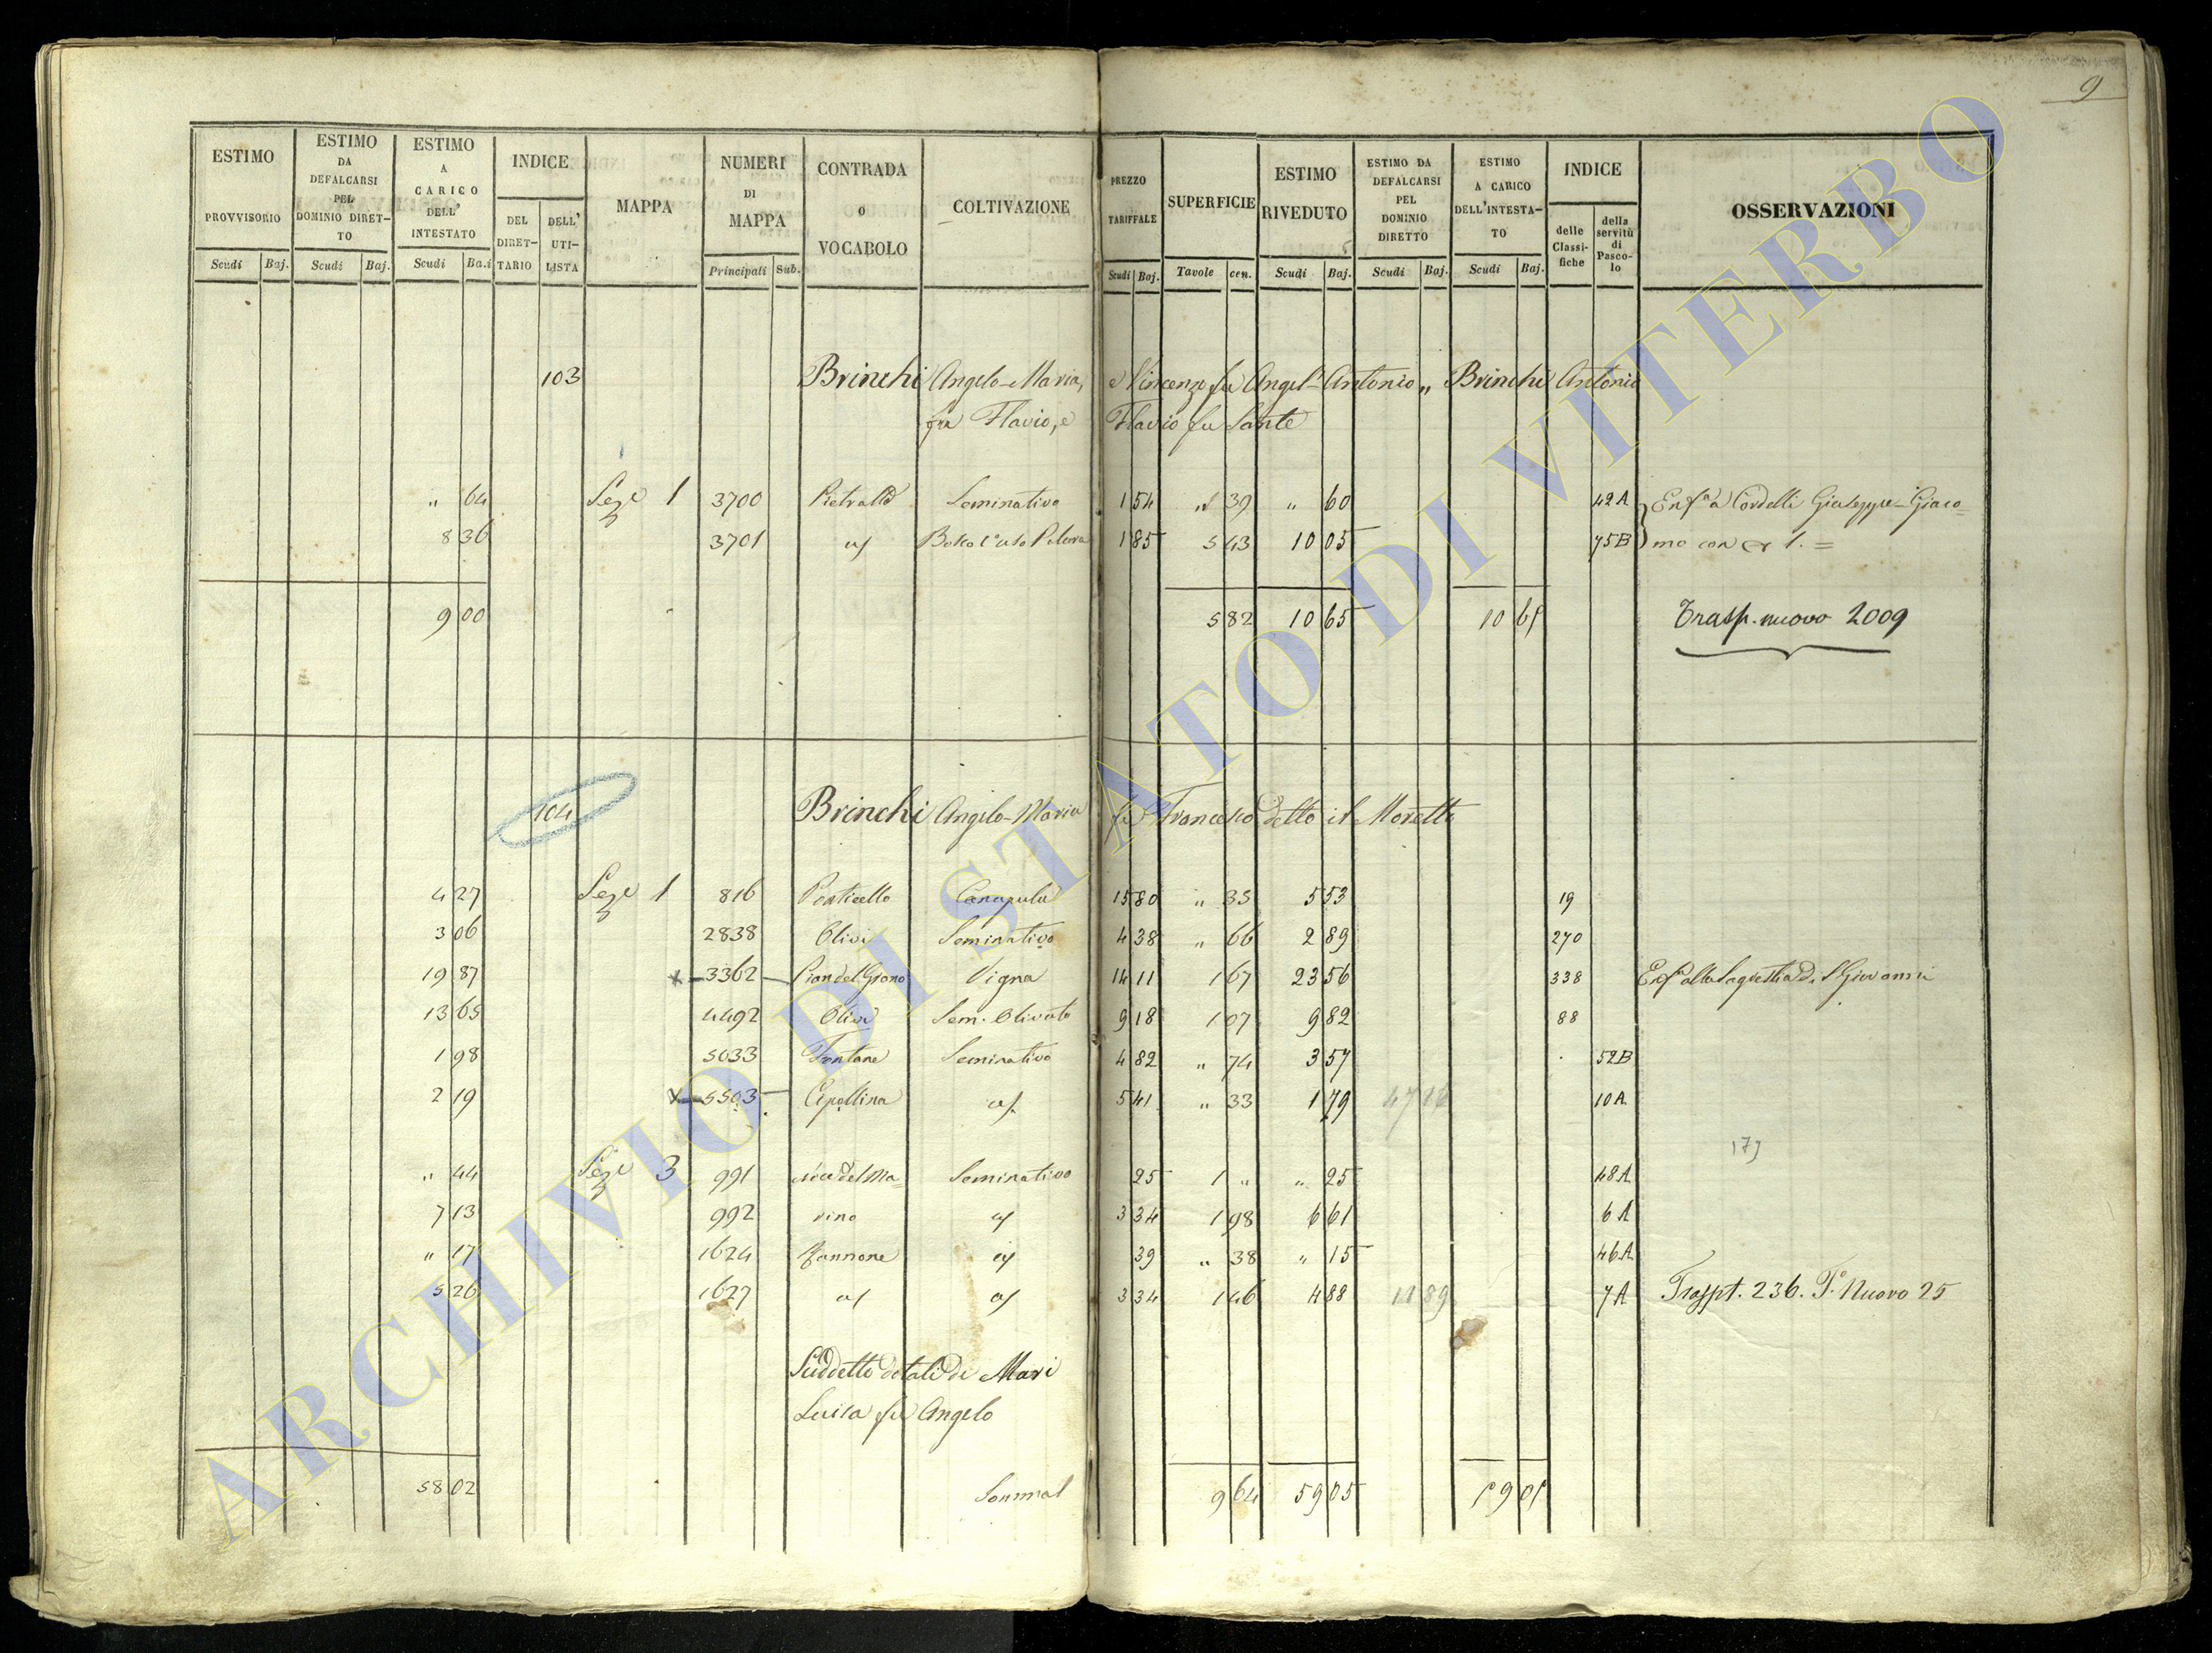 9
ESTIMO PROVVISORIO
ESTIMO DA DEFALCARSI PEL DOMINIO DIRET-TO
ESTIMO A CARICO DELL' INTESTATO
INDICE
DEL DIRET-TARIO
DELL' UTI-LISTA
MAPPA
NUMERI DI MAPPA
CONTRADA O VOCABOLO
COLTIVAZIONE
PREZZO TARIFFALE
SUPERFICIE
ESTIMO RIVEDUTO
ESTIMO DA DEFALCARSI PEL DOMINIO DIRETTO
ESTIMO A CARICO DELL'INTESTA-TO
INDICE
delle Classi-fiche
della servitù di Pasco-lo
OSSERVAZIONI
Scudi Baj. Scudi Baj. Scudi Ba.i Principali Sub. Scudi Boj. Tavole cen. Scudi Baj. Scudi Baj. Scudi Baj.
103 Brinchi Angelo-Maria, e Vincenzo fu Angel-Antonio „ Brinchi Antonio
fu Flavio, e Flavio fu Sante
" 64 Seze 1 3700 Seminativo 1 54 " 39 " 60 42A Enf.a a Cordelli Giuseppe-Giaco=
8 36 3701 1 85 5 43 10 05 75B mo con 1. =
9 00 5 82 10 65 10 65 Trasp. nuovo 2009
104 Brinchi Angelo-Maria fu Francesco detto il Moretto
4 27 Seze 1 816 Ponticello Canapule 15 80 " 35 5 53 19
3 06 2838 Olivi Seminativo 4 38 " 66 2 89 270
19 87 x 3362 Pian del Grano Vigna 14 11 1 67 23 56 338 Enf. alla Sagrestia di S. Giovanni
13 65 4492 Olivi Sem. Olivato 9 18 1 07 9 82 88
1 98 5033 Fontane Seminativo 4 82 " 74 3 57 52B
2 19 x 5503 Cipollina 5 41 " 33 1 79 10A
" 44 Seze 3 991 del Ma= Seminativo 25 1 " " 25 48A
7 13 992 rino 3 34 1 98 6 61 6A
" 17 1624 Zannone 39 " 38 " 15 46A
5 26 1627 3 34 1 46 4 88 7A Traspt. 236. P.o Nuovo 25
Suddetto dotali di Mari
Luisa fu Angelo
58 02 9 64 59 05 59 05
ARCHIVIO DI STATO DI VITERBO